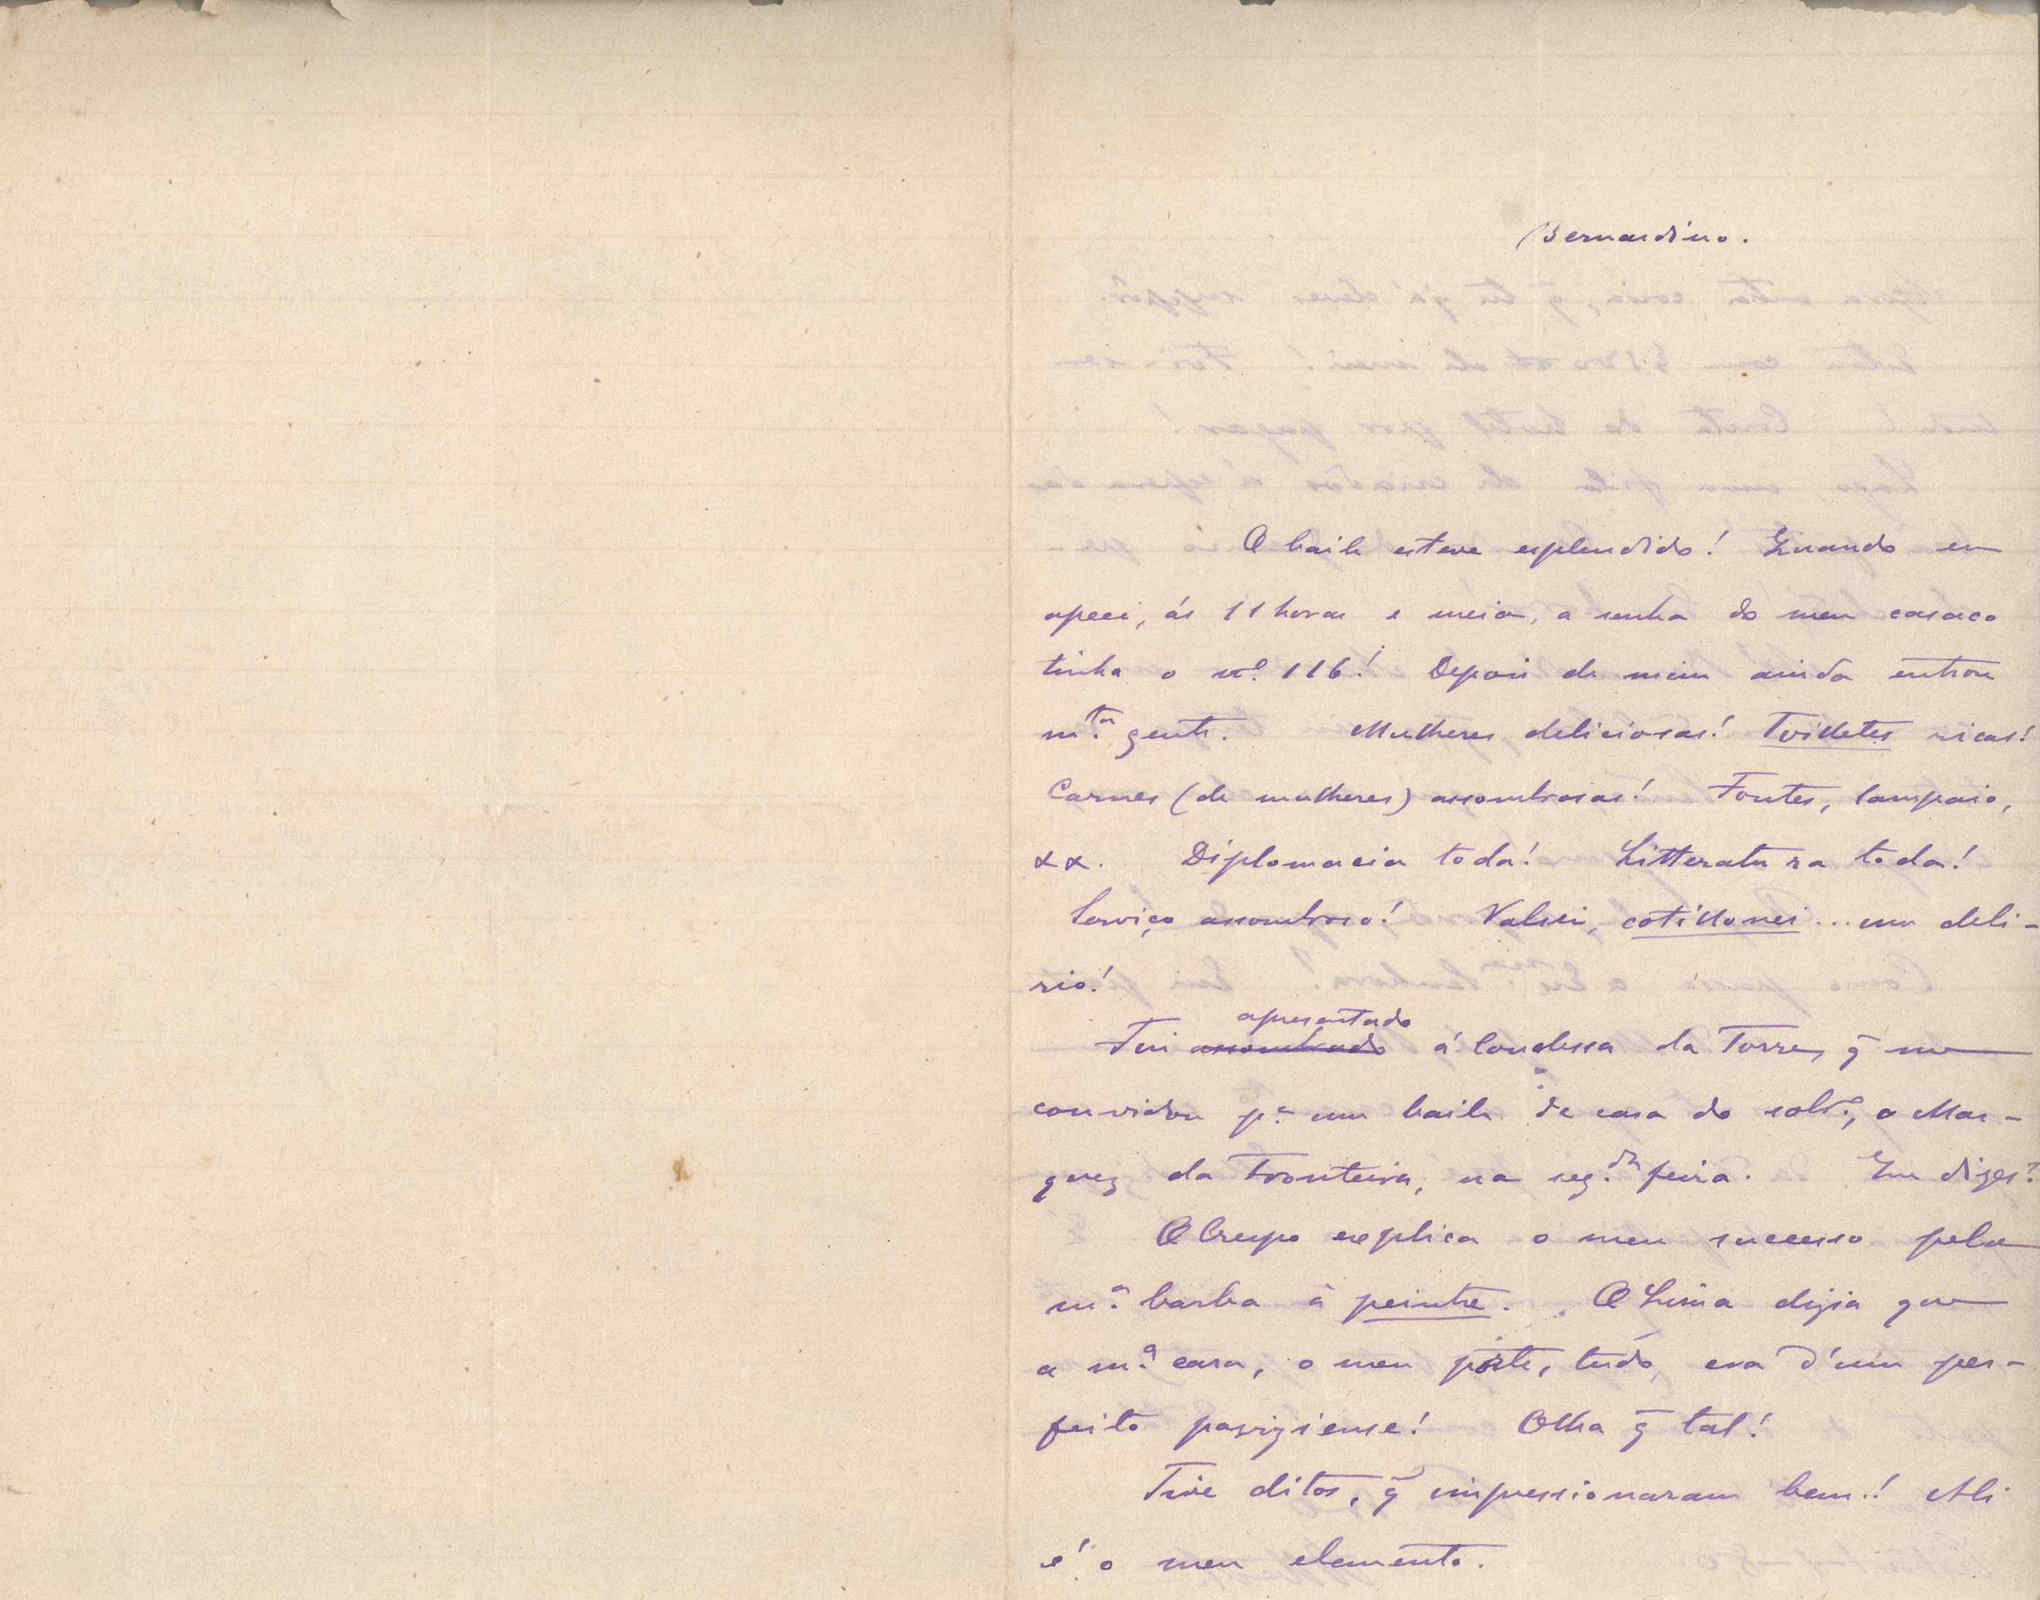 Bernardino.
O baile esteve esplendido! Quando eu
apeei, ás 11 horas e meia, a senha do meu casaco
tinha o nº. 116! Depois de mim ainda entrou
m.ta gente. Mulheres deliciosas! Toiletes ricas!
Carnes (de mulheres) assombrosas! Fontes, Sampaio,
&&. Diplomacia toda! Litteratura toda!
Serviço assombroso! Valsei, cotillonei... um deli-
rio!
apresentado
Fui assombrado á Condessa da Torre, q̃ me
convidou p.a um baile de casa do sobr.o, o Mar-
quez da Fronteira, na seg.da feira. Que dizes?
O Crespo explica o meu successo pela
m.a barba à peintre. O Lima dizia que
a m.a cara, o meu porte, tudo, era d'um per-
feito parisiense! Olha q̃ tal!
Tive ditos, q̃ impressionaram bem! Ali
é o meu elemento.